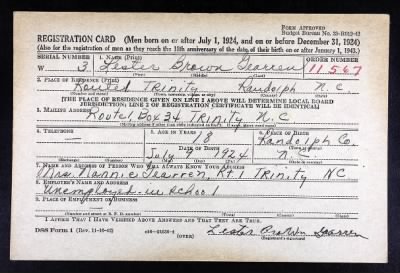 FORM APPROVED
Budget Bureau No. 33-R012-42
REGISTRATION CARD (Men born on or after July 1, 1924, and on or before December 31, 1924)
(Also for the registration of men as they reach the 18th anniversary of the date of their birth on or after January 1, 1943.)
SERIAL NUMBER 1. NAME (Print) ORDER NUMBER
W 3 Lester Brown Searren 11567
(First) (Middle) (Last)
2. PLACE OF RESIDENCE (Print)
Route 1 Trinity Randolph N.C.
[THE PLACE OF RESIDENCE GIVEN ON LINE 2 ABOVE WILL DETERMINE LOCAL BOARD
JURISDICTION; LINE 2 OF REGISTRATION CERTIFICATE WILL BE IDENTICAL]
3. MAILING ADDRESS
Route 1 Box 34 Trinity N.C.
4. TELEPHONE 5. AGE IN YEARS 6. PLACE OF BIRTH
18 Randolph Co.
DATE OF BIRTH
July 9 1924 N.C.
7. NAME AND ADDRESS OF PERSON WHO WILL ALWAYS KNOW YOUR ADDRESS
Mrs. Nannie Searren, Rt. 1 Trinity NC
8. EMPLOYER'S NAME AND ADDRESS
Unemployed in School
9. PLACE OF EMPLOYMENT OR BUSINESS
I AFFIRM THAT I HAVE VERIFIED ABOVE ANSWERS AND THAT THEY ARE TRUE.
DSS Form 1 (Rev. 11-16-42) (OVER) Lester Brown Searren
(Registrant's signature)